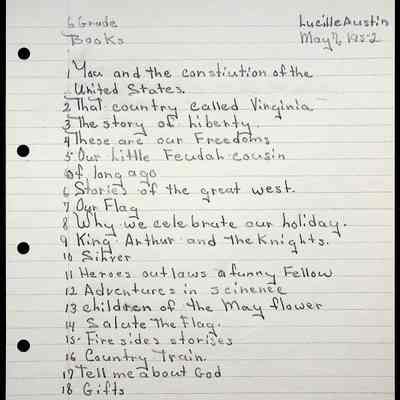 6 Grade
Lucille Austin
Books
May 7, 1952
1 You and the constiution of the
United States.
2 That country called Virginia
3 The story of hiberty.
4 These are our Freedoms
5 Our little Feudah cousin
of long ago
6 Stories of the great west.
7 Our Flag
8 Why we celebrate our holiday.
9 King Arthur and the Knights.
10 Sihver
11 Heroes outlaws a funny Fellow
12 Adventures in scinence
13 children of the May flower
14 Salute The Flag.
15- Fire sides stories
16 Country Train.
17 Tell me about God
18 Gifts